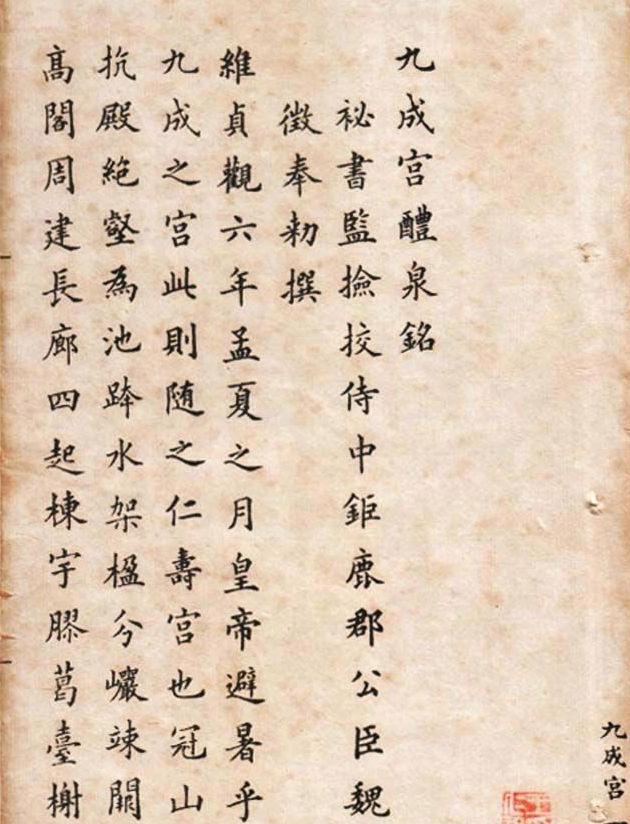 九成宮醴泉銘
祕書監撿挍侍中鉅鹿郡公臣魏
徵奉勑撰
維貞觀六年孟夏之月皇帝避暑乎
九成之宮此則随之仁壽宮也冠山
抗殿絶壑為池跨水架楹分巗竦闕
高閣周建長廊四起棟宇膠葛臺榭
九成宮